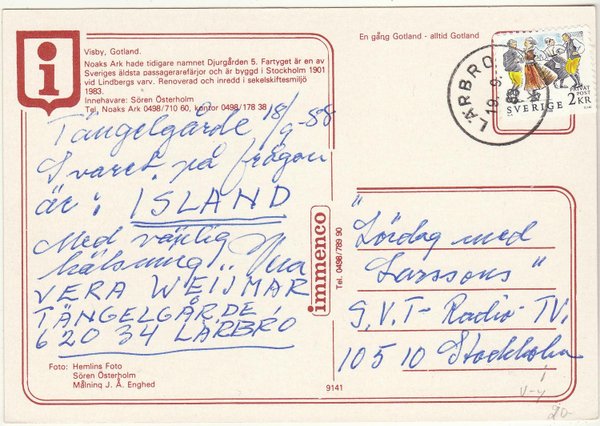 i
Visby, Gotland.
Noaks Ark hade tidigare namnet Djurgården 5. Fartyget är en av
Sveriges äldsta passagerarefärjor och är byggd i Stockholm 1901
vid Lindbergs varv. Renoverad och inredd i sekelskiftesmiljö
1983.
Innehavare: Sören Österholm
Tel, Noaks Ark 0498/710 60, kontor 0498/178 38
Tängelgårde 18/9-88
Svaret på frågan
är: ISLAND
Med vänlig
hälsning,, Vera
VERA WEIJMAR
TÄNGELGÅRDE,
620 34 LÄRBRO
Foto: Hemlins Foto
Sören Österholm
Målning J. Å. Enghed
immenco
Tel. 0498/789 90
9141
En gång Gotland - alltid Gotland
LÄRBRO
19.9.
88
SVERIGE 2KR
"Lördag med
Larssons"
S.V.T- Radio-TV,
105 10 Stockholm
V-y
20-